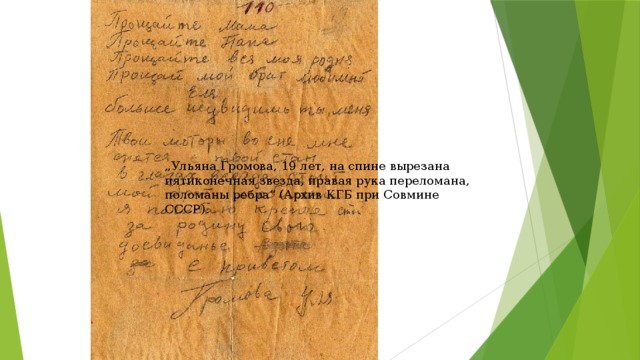 110
Прощайте Мама
Прощайте Папа
Прощайте вся моя родня
Прощай мой брат любимый
Еля
больше неувидишь ты, меня
Твои моторы во сне мне
снятся твой стан
в глазах всегда стоит
мой
„Ульяна Громова, 19 лет, на спине вырезана
пятиконечная звезда, правая рука переломана,
поломаны ребра“ (Архив КГБ при Совмине
СССР).
я крепче
за родину свою
досвиданье
с приветом
Громова Уля